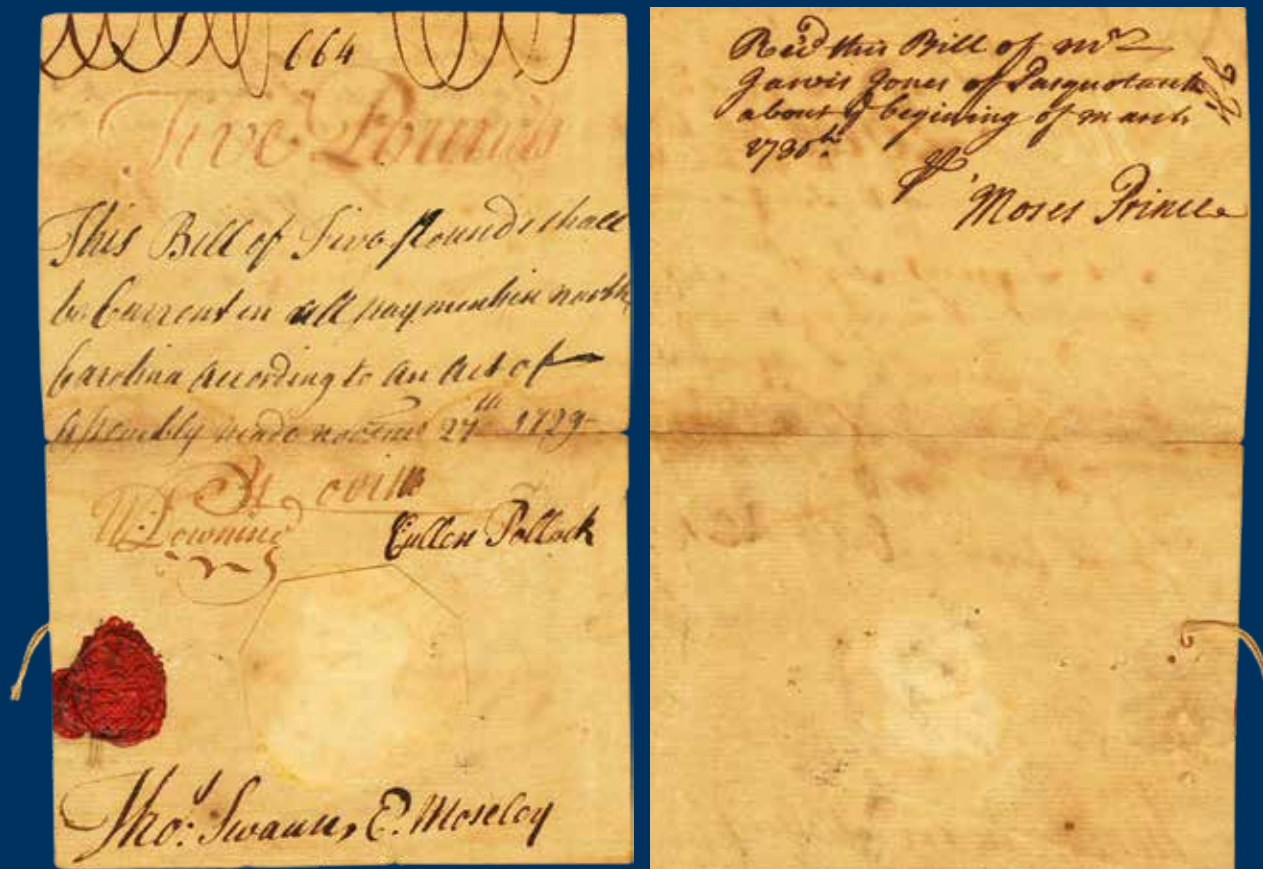 664
Five Pounds
This Bill of Five pounds shall
be Current in all payments in north
Carolina according to an Act of
Assembly made novem 27th 1729
W: Downing
Cullen Pollock
Tho: Swann, E. Moseley
Rec'd this Bill of mr
Jarvis Jones of Pasquotank
about ye begining of march
173
Moses Prince